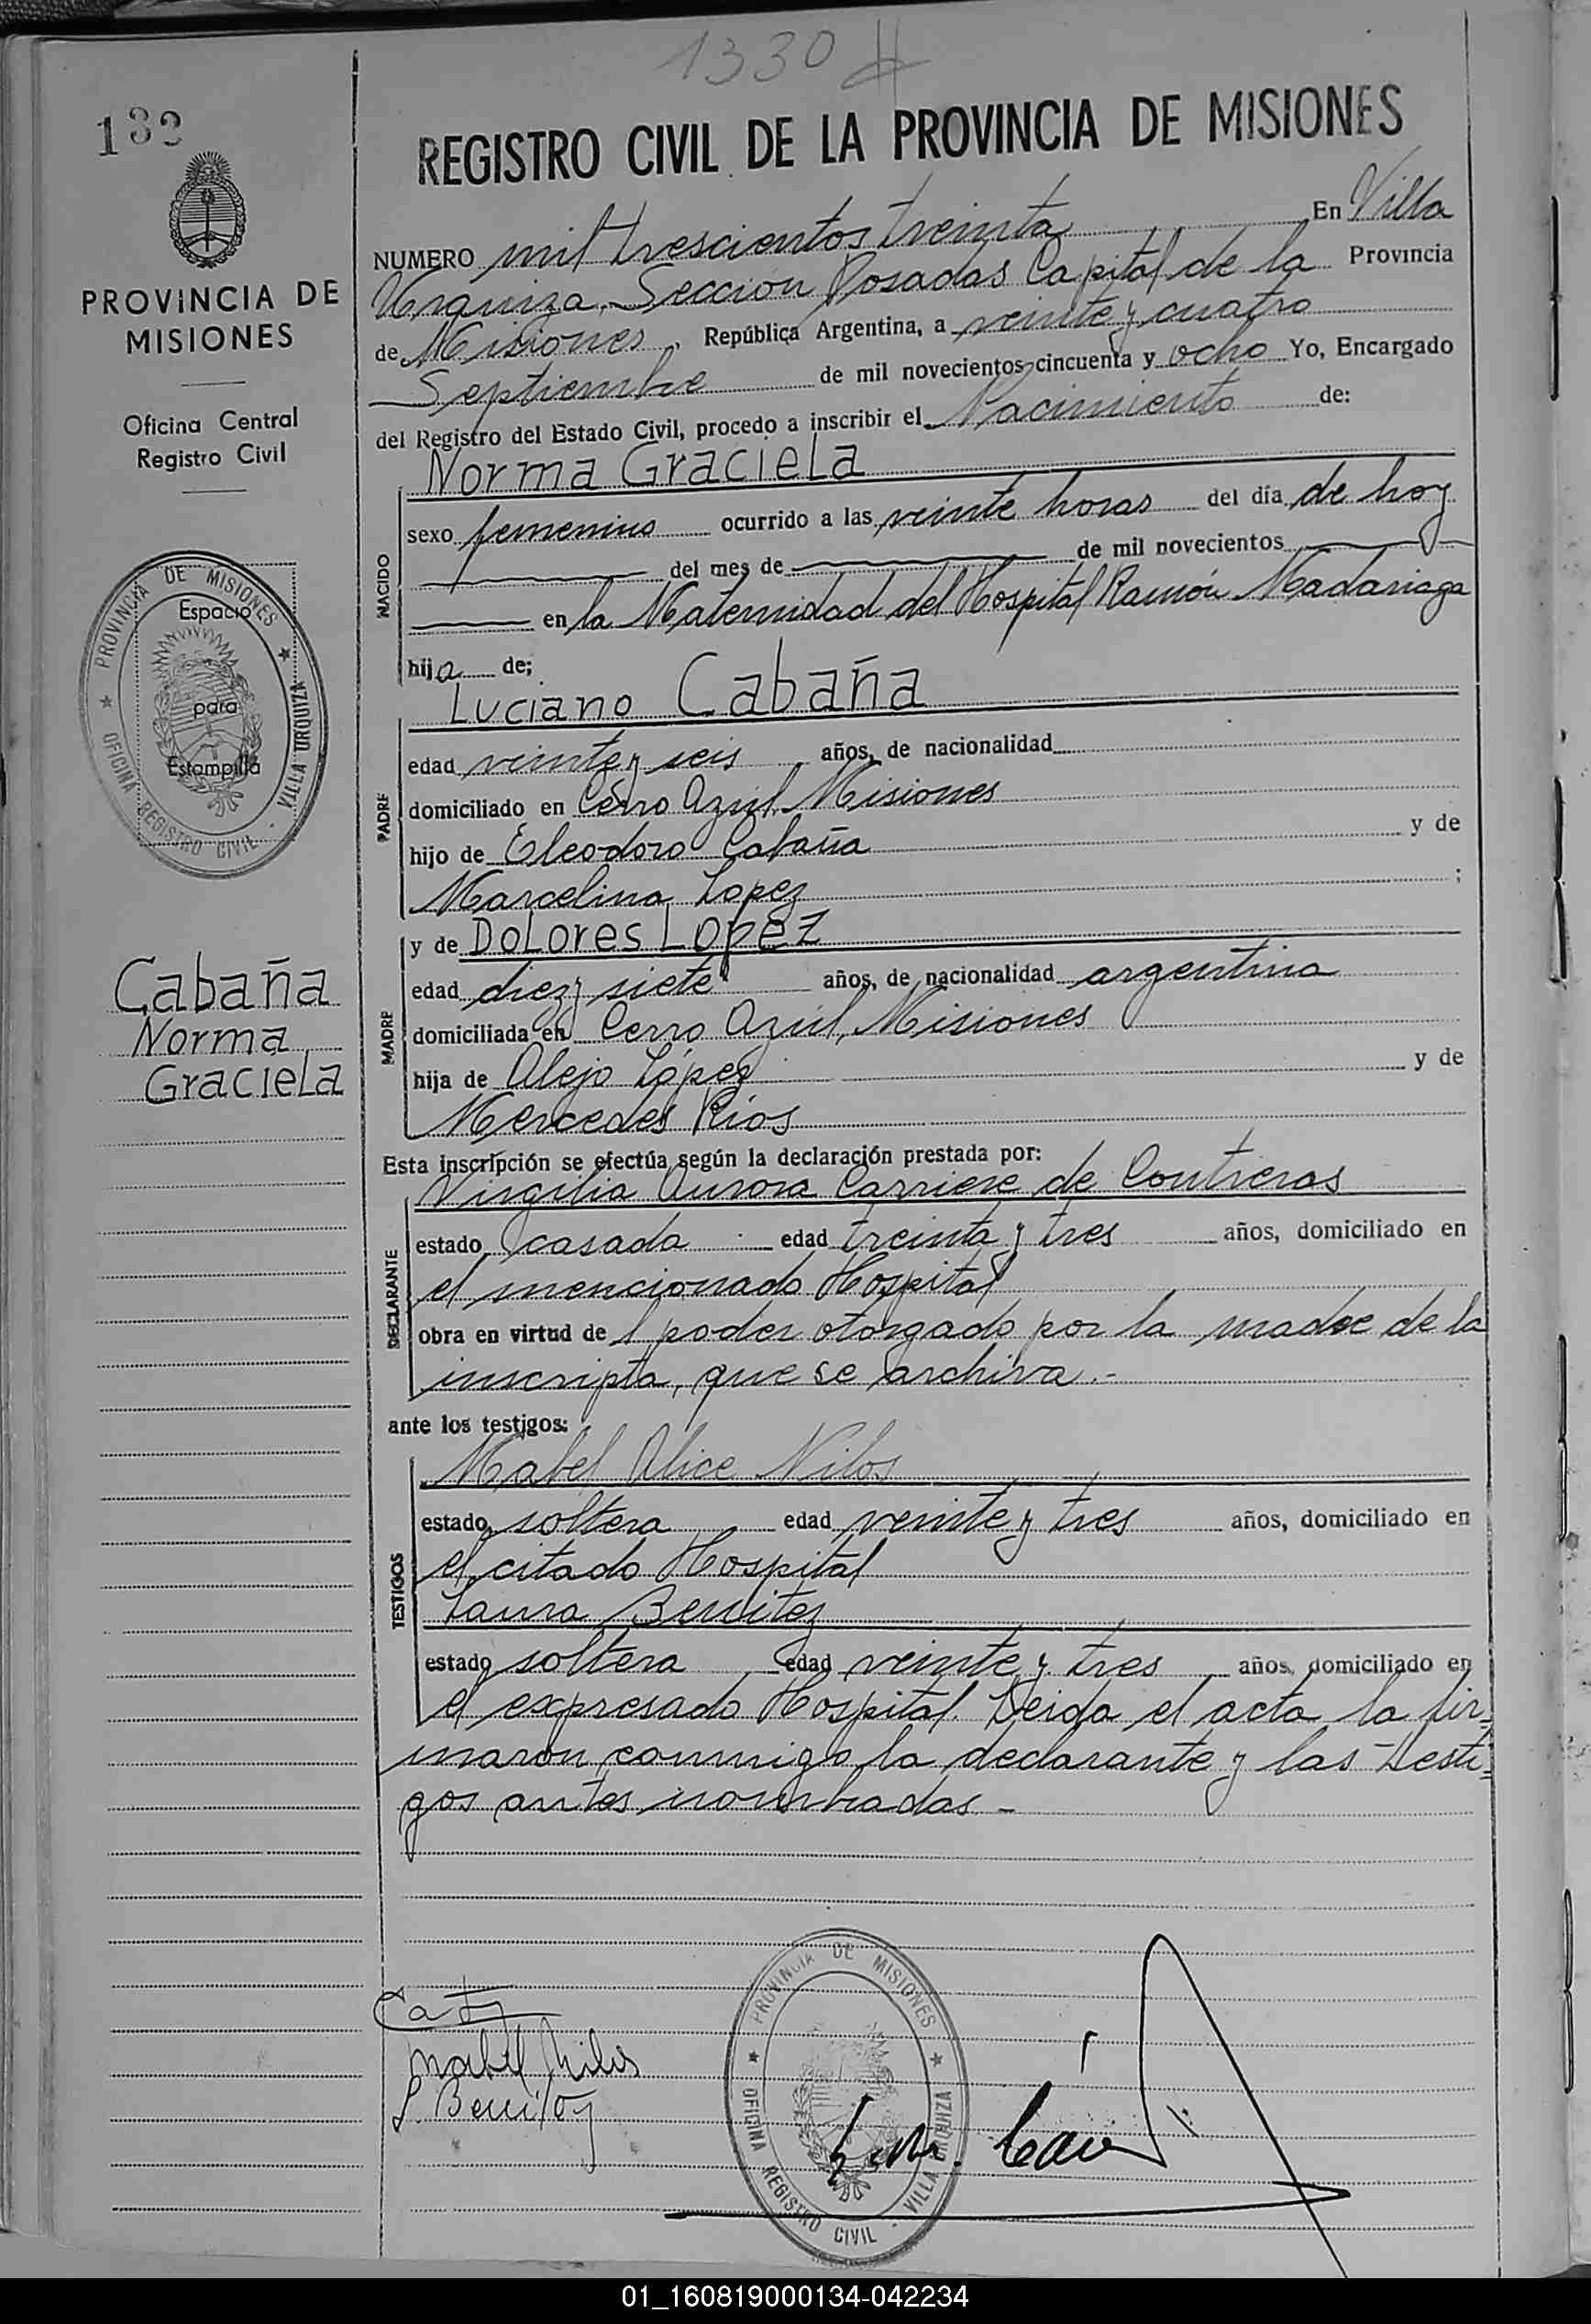 1330
132
REGISTRO CIVIL DE LA PROVINCIA DE MISIONES
PROVINCIA DE
MISIONES
Oficina Central
Registro Civil
NUMERO mil trescientos treinta En Villa
Urquiza, Sección Posadas Capital de la Provincia
de Misiones, República Argentina, a veinte y cuatro
Septiembre de mil novecientos cincuenta y ocho Yo, Encargado
del Registro del Estado Civil, procedo a inscribir el Nacimiento de:
NACIDO
Norma Graciela
sexo femenino ocurrido a las veinte horas del día de hoy
del mes de de mil novecientos
en la Maternidad del Hospital Ramón Madariaga
hija de;
PROVINCIA DE MISIONES
OFICINA REGISTRO CIVIL - VILLA URQUIZA
Espacio
para
Estampilla
PADRE
Luciano Cabaña
edad veinte y seis años, de nacionalidad
domiciliado en Cerro Azul, Misiones
hijo de Eleodoro Cabaña y de
Marcelina Lopez ;
MADRE
y de Dolores Lopez
edad diez y siete años, de nacionalidad argentina
domiciliada en Cerro Azul, Misiones
hija de Alejo López y de
Mercedes Ríos
Cabaña
Norma
Graciela
Esta inscripción se efectúa según la declaración prestada por:
DECLARANTE
Virgilia Aurora Carriere de Contreras
estado casada edad treinta y tres años, domiciliado en
el mencionado Hospital
obra en virtud de l poder otorgado por la madre de la
inscripta, que se archiva.-
ante los testigos:
TESTIGOS
Mabel Alice Nilos
estado soltera edad veinte y tres años, domiciliado en
el citado Hospital
Laura Benitez
estado soltera edad veinte y tres años, domiciliado en
el expresado Hospital. Leída el acta la fir=
maron conmigo la declarante y las testi=
gos antes nombradas -
Mabel Nilos
L. Benitez
PROVINCIA DE MISIONES
OFICINA REGISTRO CIVIL - VILLA URQUIZA
01_160819000134-042234